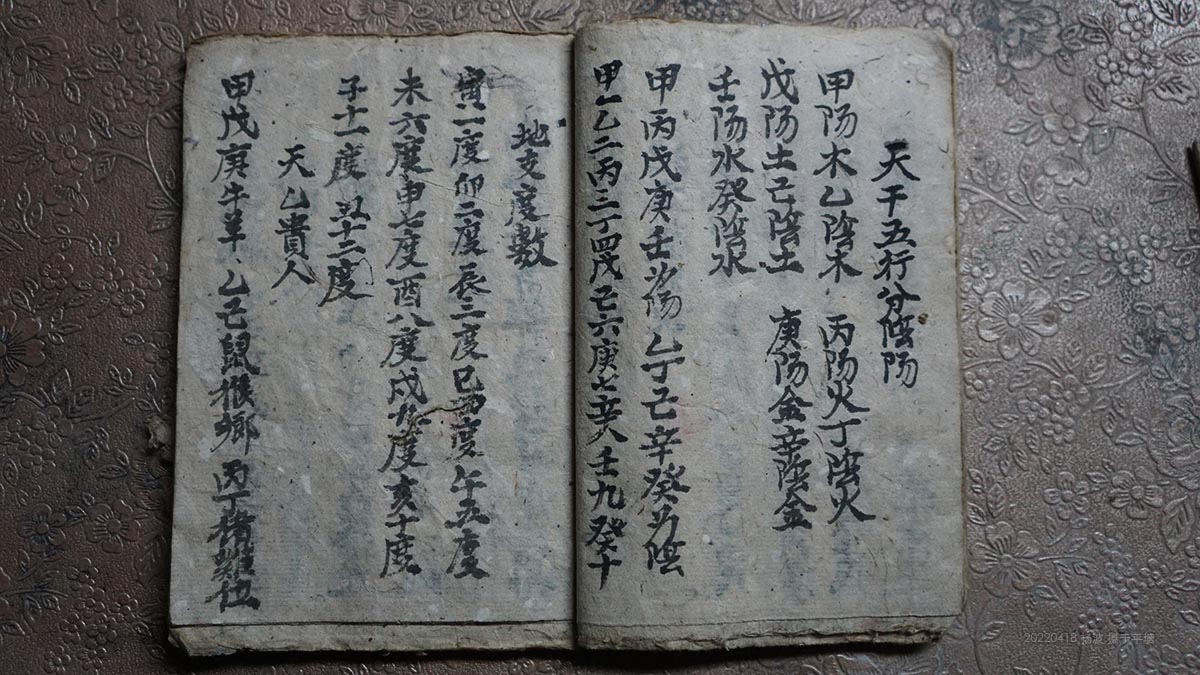 天干五行分陰陽
甲陽木乙陰木 丙陽火丁陰火
戊陽土己陰土 庚陽金辛陰金
壬陽水癸陰水
甲丙戊庚壬为陽 乙丁己辛癸为陰
甲一乙二丙三丁四戊己六庚七辛八壬九癸十
地支度敷
寅一度卯二度辰三度巳四度午五度
未六度申七度酉八度戌九度亥十度
子十一度 丑十二度
天乙貴人
甲戊庚牛羊、乙己鼠猴鄉 丙丁猪雞位
20220418 杨波 摄于平塘